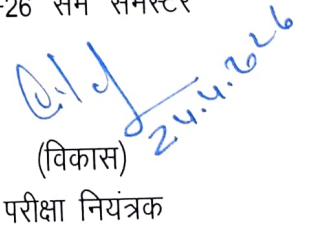 -26 सम समस्टर
24.4.2026
(विकास)
परीक्षा नियंत्रक